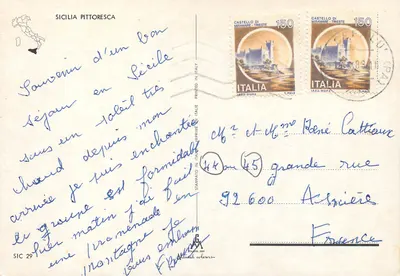 SICILIA PITTORESCA
Souvenir d'un bon
séjour en Sicile
sous un soleil très
chaud depuis mon
arrivée je suis enchantée
le groupe est formidable
Hier matin j'ai fait
une promenade en
montagne je
vous embrasse
SIC 29
CASTELLO DI
MIRAMARE - TRIESTE
150
ITALIA
CASTELLO DI
MIRAMARE - TRIESTE
150
ITALIA
Mr et Mme René Cattiaux
44 ou 45 grande rue
92600 Asnières
France